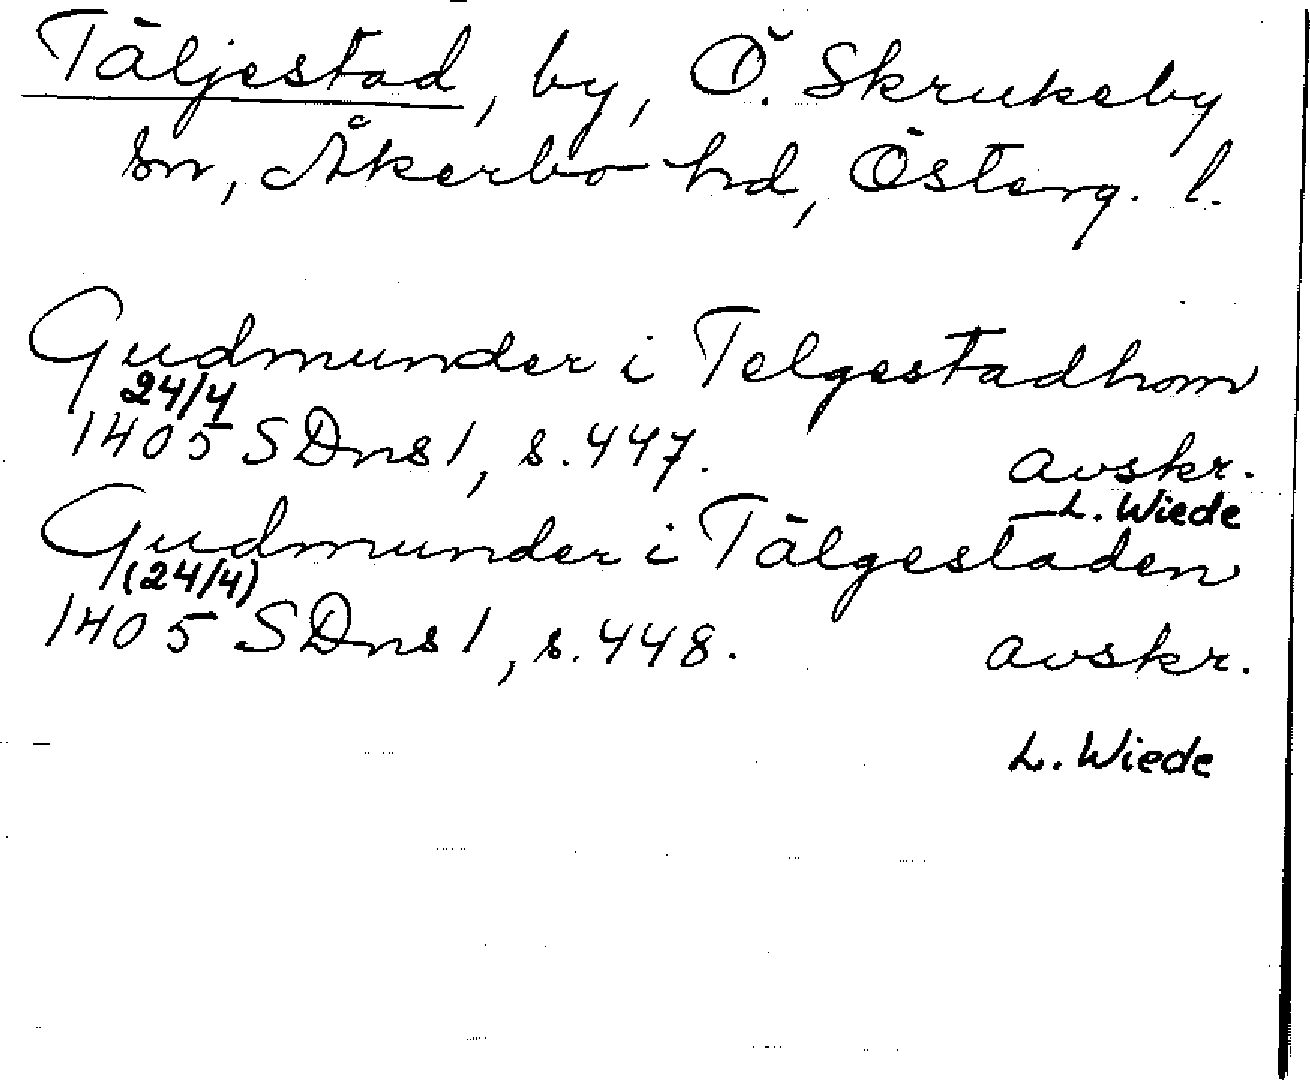 Täljestad, by, Ö. Skrukeby
sn, Åkerbo hd, Österg. l.
Gudmunder i Telgestadhom
24/4
1405 SDns 1, s. 447. avskr.
L. Wiede
Gudmunder i Tälgestaden
(24/4)
1405 SDns 1, s. 448. avskr.
L. Wiede